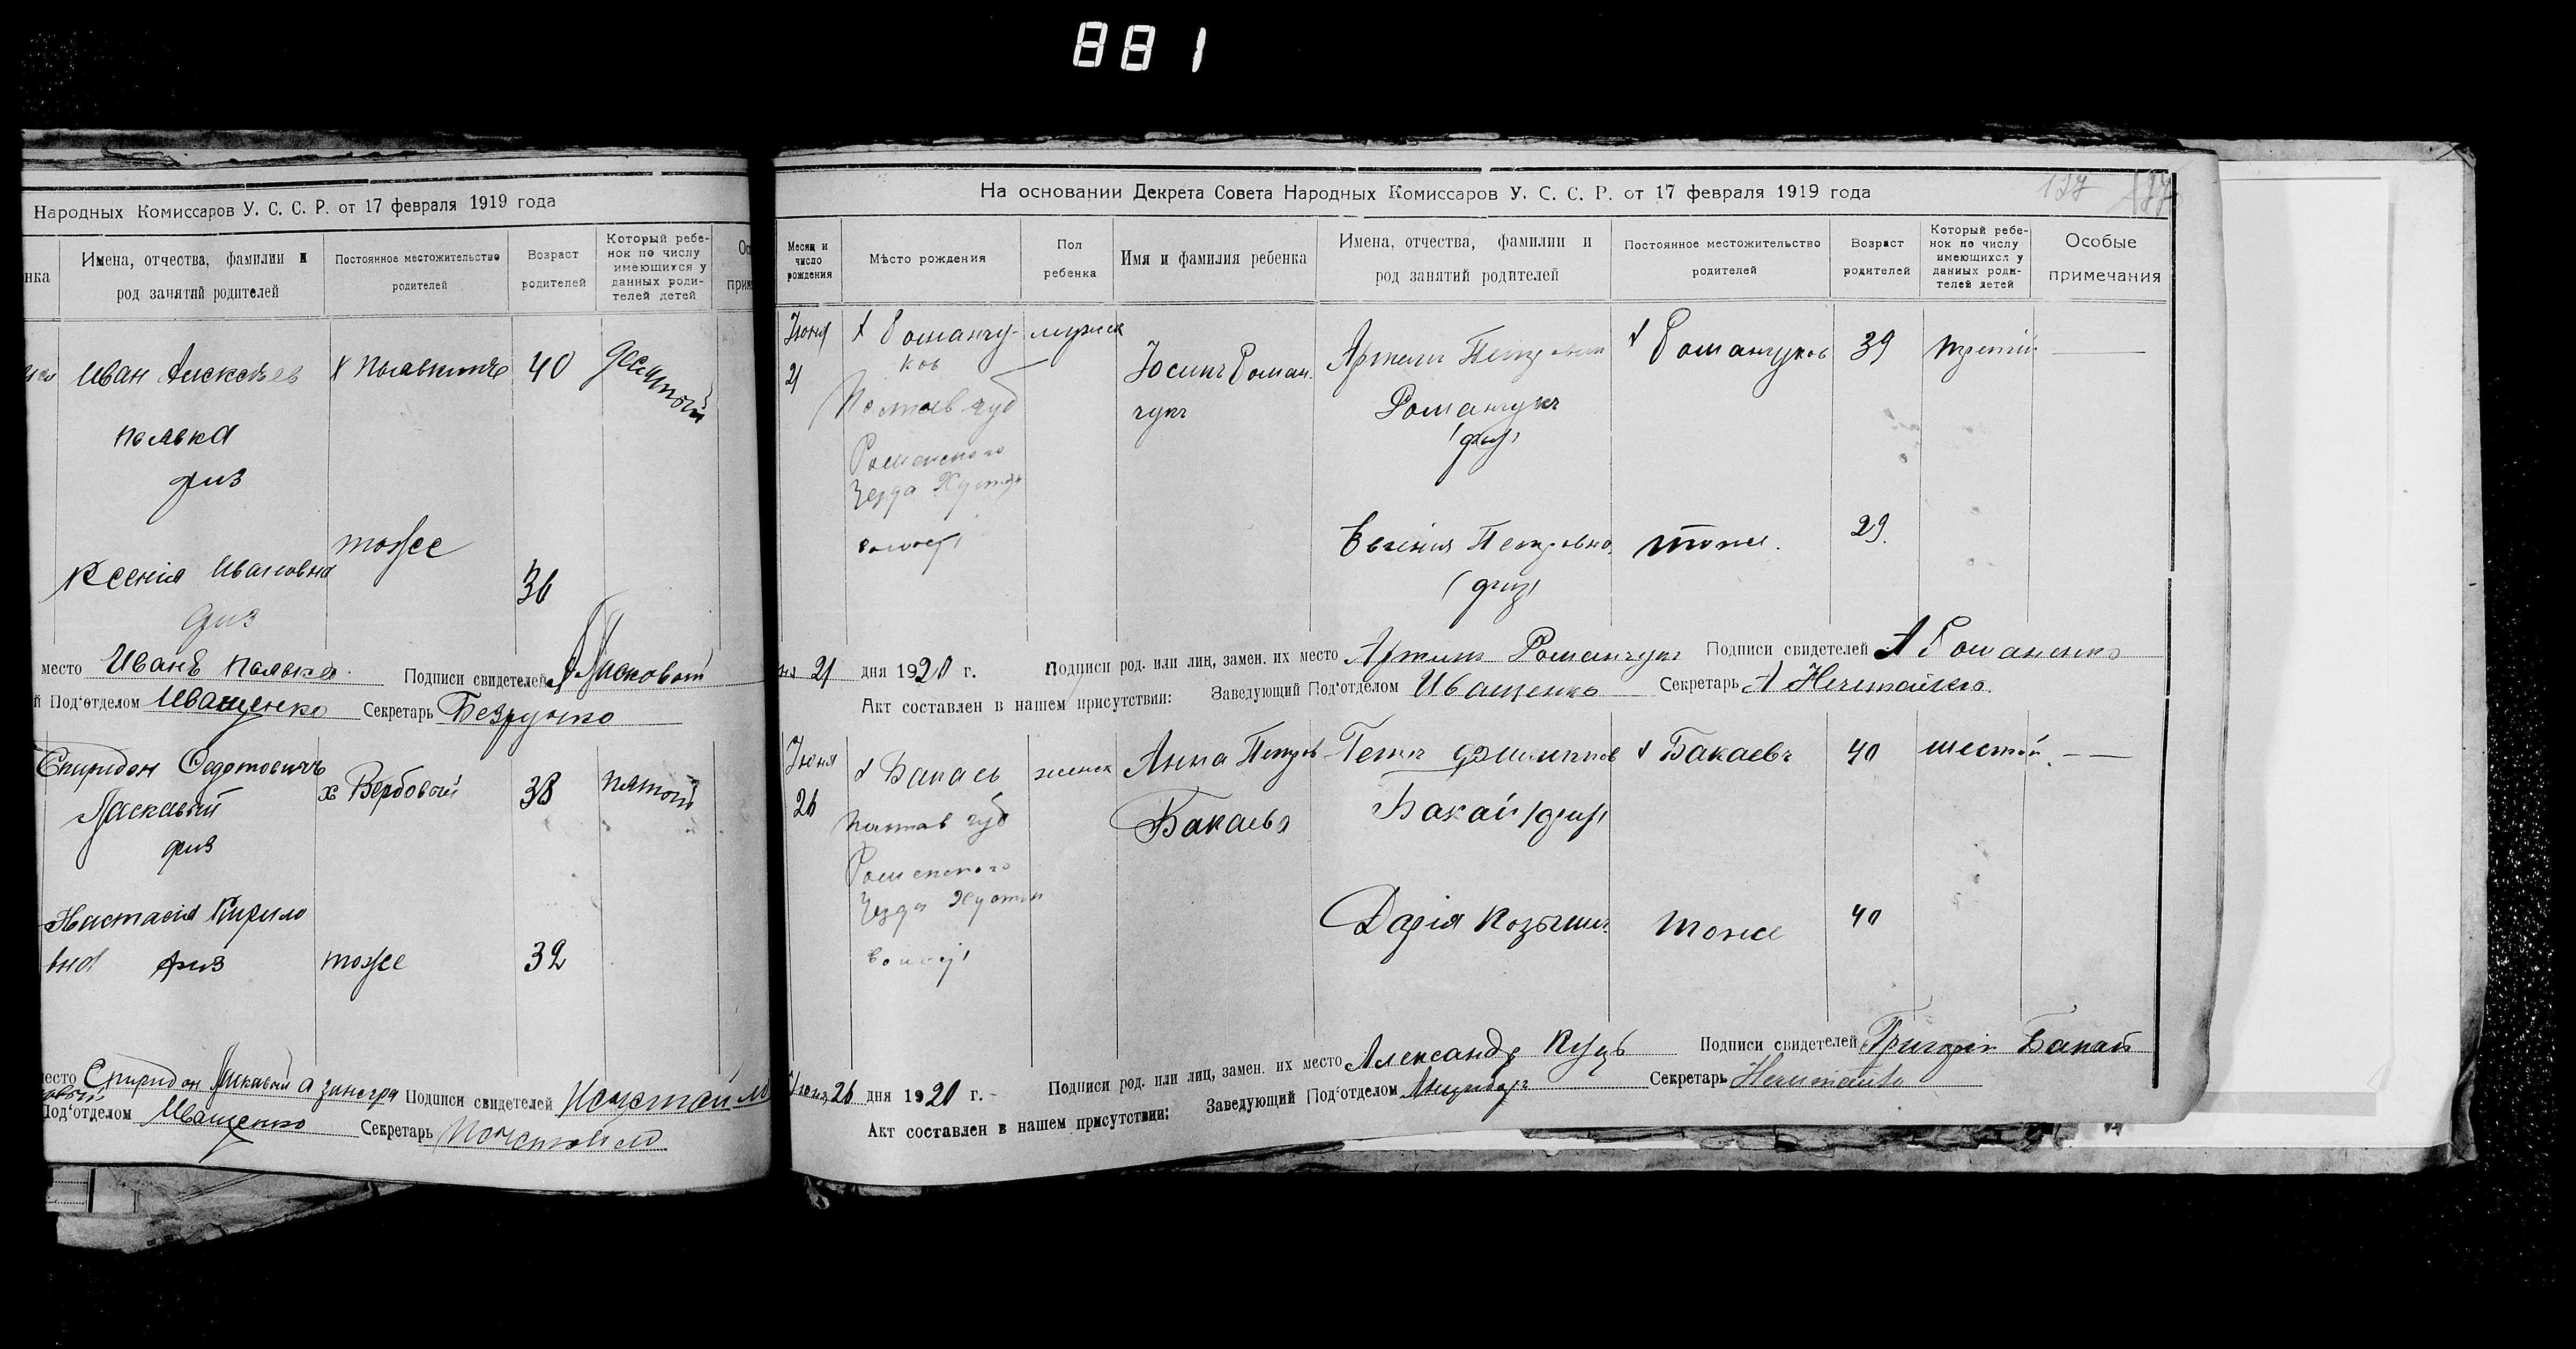 881
Народных Комиссаров У. С. С. Р. от 17 февраля 1919 года
нка
Имена, отчества, фамилии и
род занятий родителей
Постоянное местожительство
родителей
Возраст
родителей
Который ребе-
нок по числу
имеющихся у
данных роди-
телей детей
Иван Алексеев
полька
физ
40
десятый
Ксенія Ивановна
физ
тоже
36
место Иванъ полька Подписи свидетелей
й Под‘отделом Иващенко Секретарь
Спиридон Федотовичъ
Ласкавый
физ
х Вербовый
38
пятый
Настасія Кирило
вна физ
тоже
32
место Спиридон Ласкавый а Подписи свидетелей
Под‘отделом Иващенко Секретарь
На основании Декрета Совета Народных Комиссаров У. С. С. Р. от 17 февраля 1919 года
Месяц и
число
рождения
Мѣсто рождения
Пол
ребенка
Имя и фамилия ребенка
Имена, отчества, фамилии и
род занятий родителей
Постоянное местожительство
родителей
Возраст
родителей
Который ребе-
нок по числу
имеющихся у
данных роди-
телей детей
Особые
примечания
Июня
21
х Романчу-
ков
Полтав губ
Роменского
Уезда
волост
мужск
Іосипъ Роман
чукъ
Петрович
Романчукъ
(физ)
х Романчуков
39
третій
Евгенія Петровна
(физ)
тоже
29
21 дня 1920 г.
Подписи род. или лиц, замен. их место Романчукъ Подписи свидетелей А Романенко
Акт составлен в нашем присутствии: Заведующий Под‘отделом Иващенко Секретарь
Июня
26
х Бакаев
Полтав губ
Роменского
Уезда
волост
женск
Анна Петров
Бакаева
Петр Филиппов
Бакай (физ)
х Бакаевъ
40
шестой
Дарія
тоже
40
Июня 26 дня 1920 г.
Подписи род. или лиц, замен. их место Александр Подписи свидетелей Григорій Бакай
Акт составлен в нашем присутствии: Заведующий Под‘отделом Секретарь